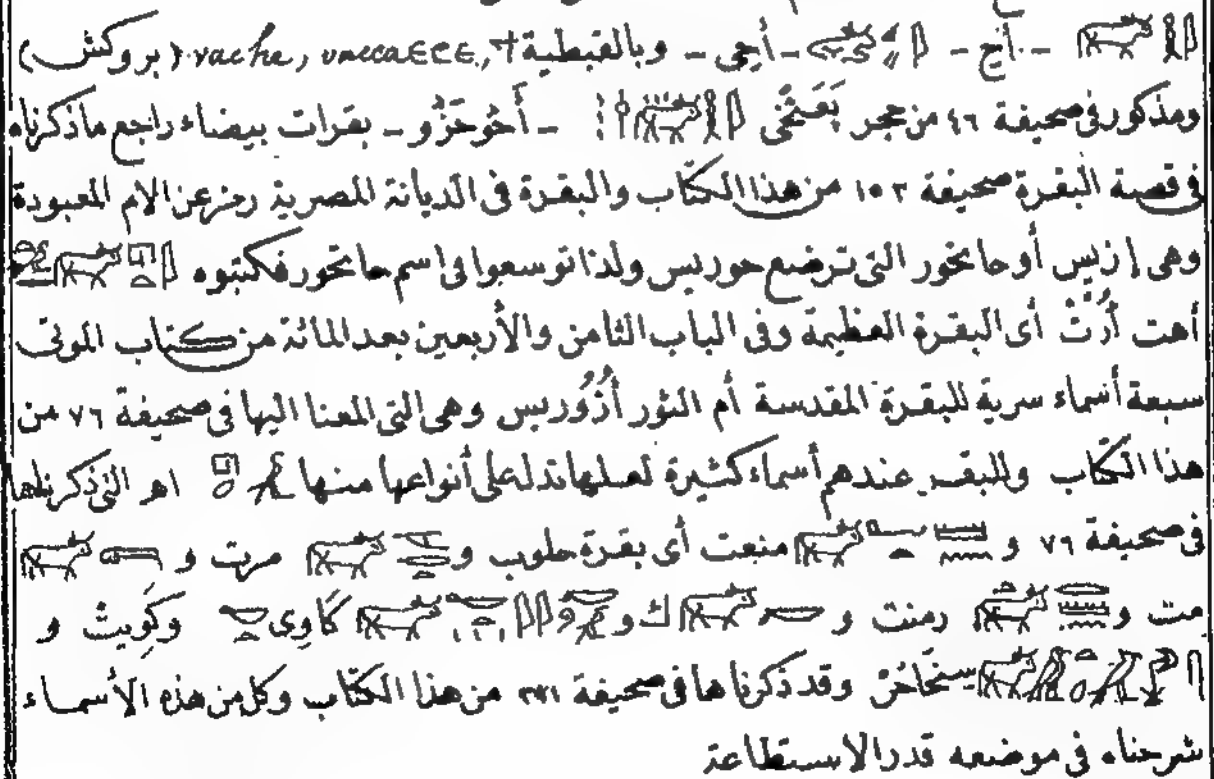 - أج - - أجى - وبالقبطية vache, (بروكش)
ومذكور فى صحيفة ٤٦ من حجر - أحُوحَزُو - بقرات بيضاء راجع ماذكرناه
فى قصة البقرة صحيفة ١٥٢ من هذا الكتاب والبقرة فى الديانة المصرية رمز عن الام المعبودة
وهى إزيس أو حاتحور التى ترضع حوريس ولذا توسعوا فى اسم حاتحور فكتبوه
أهت أُرَتْ أى البقرة العظيمة وفى الباب الثامن والأربعين بعد المائة من كتاب الموتى
سبعة أسماء سرية للبقرة المقدسة أم الثور أُزُوريس وهى التى المعنا اليها فى صحيفة ٧٦ من
هذا الكتاب وللبقر عندهم أسماء كثيرة لعلها تدل على أنواعها منها اهر التى ذكرناها
فى صحيفة ٧٦ و منعت أى بقرة حلوب و مرت و
مت و رمنت و ك و كَاوِى وكَوِيتْ و
وقد ذكرناها فى صحيفة من هذا الكتاب وكل من هذه الأسماء
شرحناه فى موضعه قدر الاستطاعة